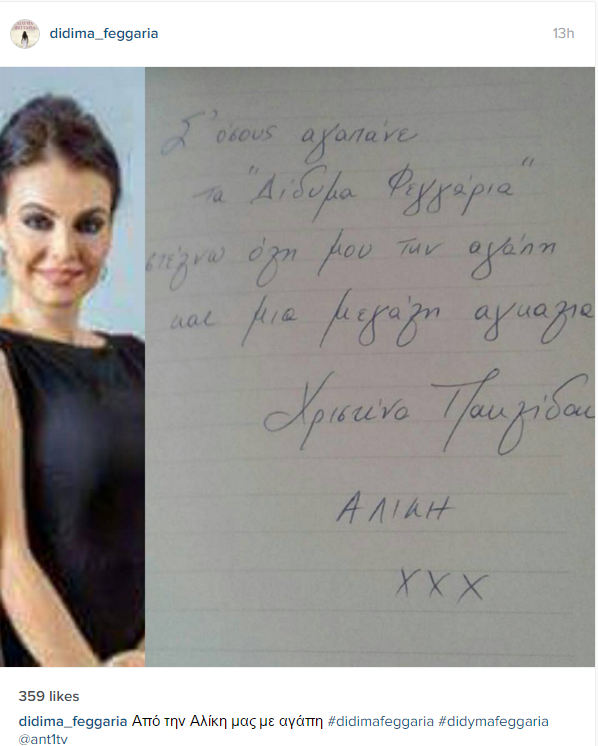 didima_feggaria
13h
Σ' όσους αγαπάνε
τα "Δίδυμα Φεγγάρια"
στέλνω όλη μου την αγάπη
και μια μεγάλη αγκαλια
Χριστίνα Παυλίδου
ΑΛΙΚΗ
XXX
359 likes
didima_feggaria Από την Αλίκη μας με αγάπη #didimafeggaria #didymafeggaria
@ant1tv